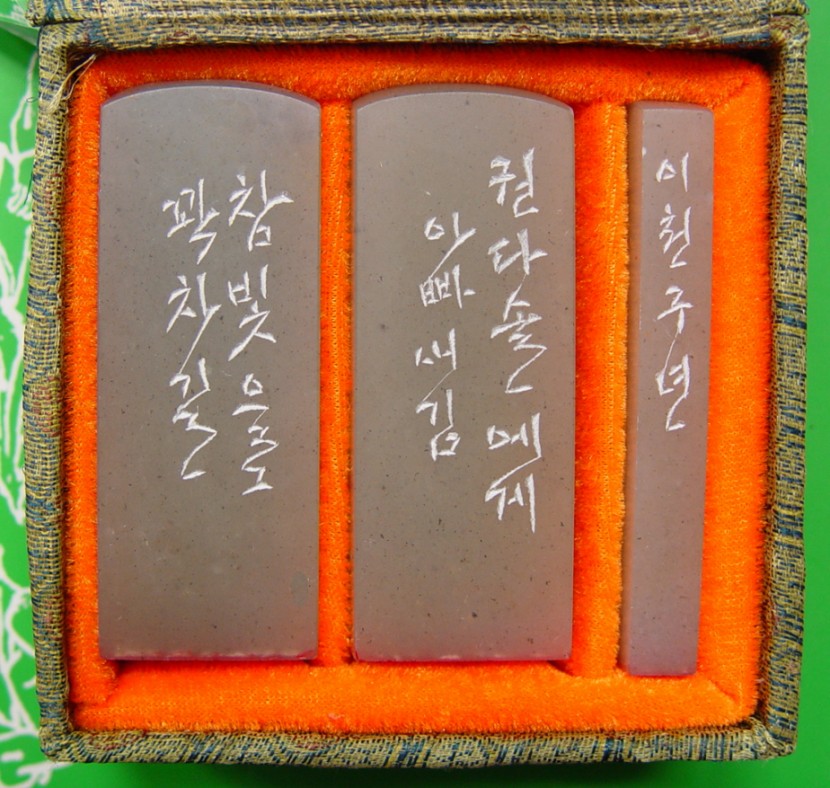 참빛으로
꽉차길
권다솔에게
아빠새김
이천구년